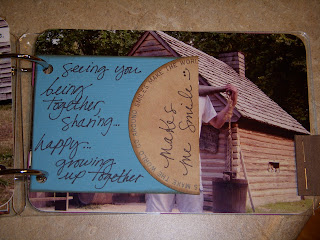 seeing you
being
together,
sharing...
happy...
growing
up together
makes
me smile